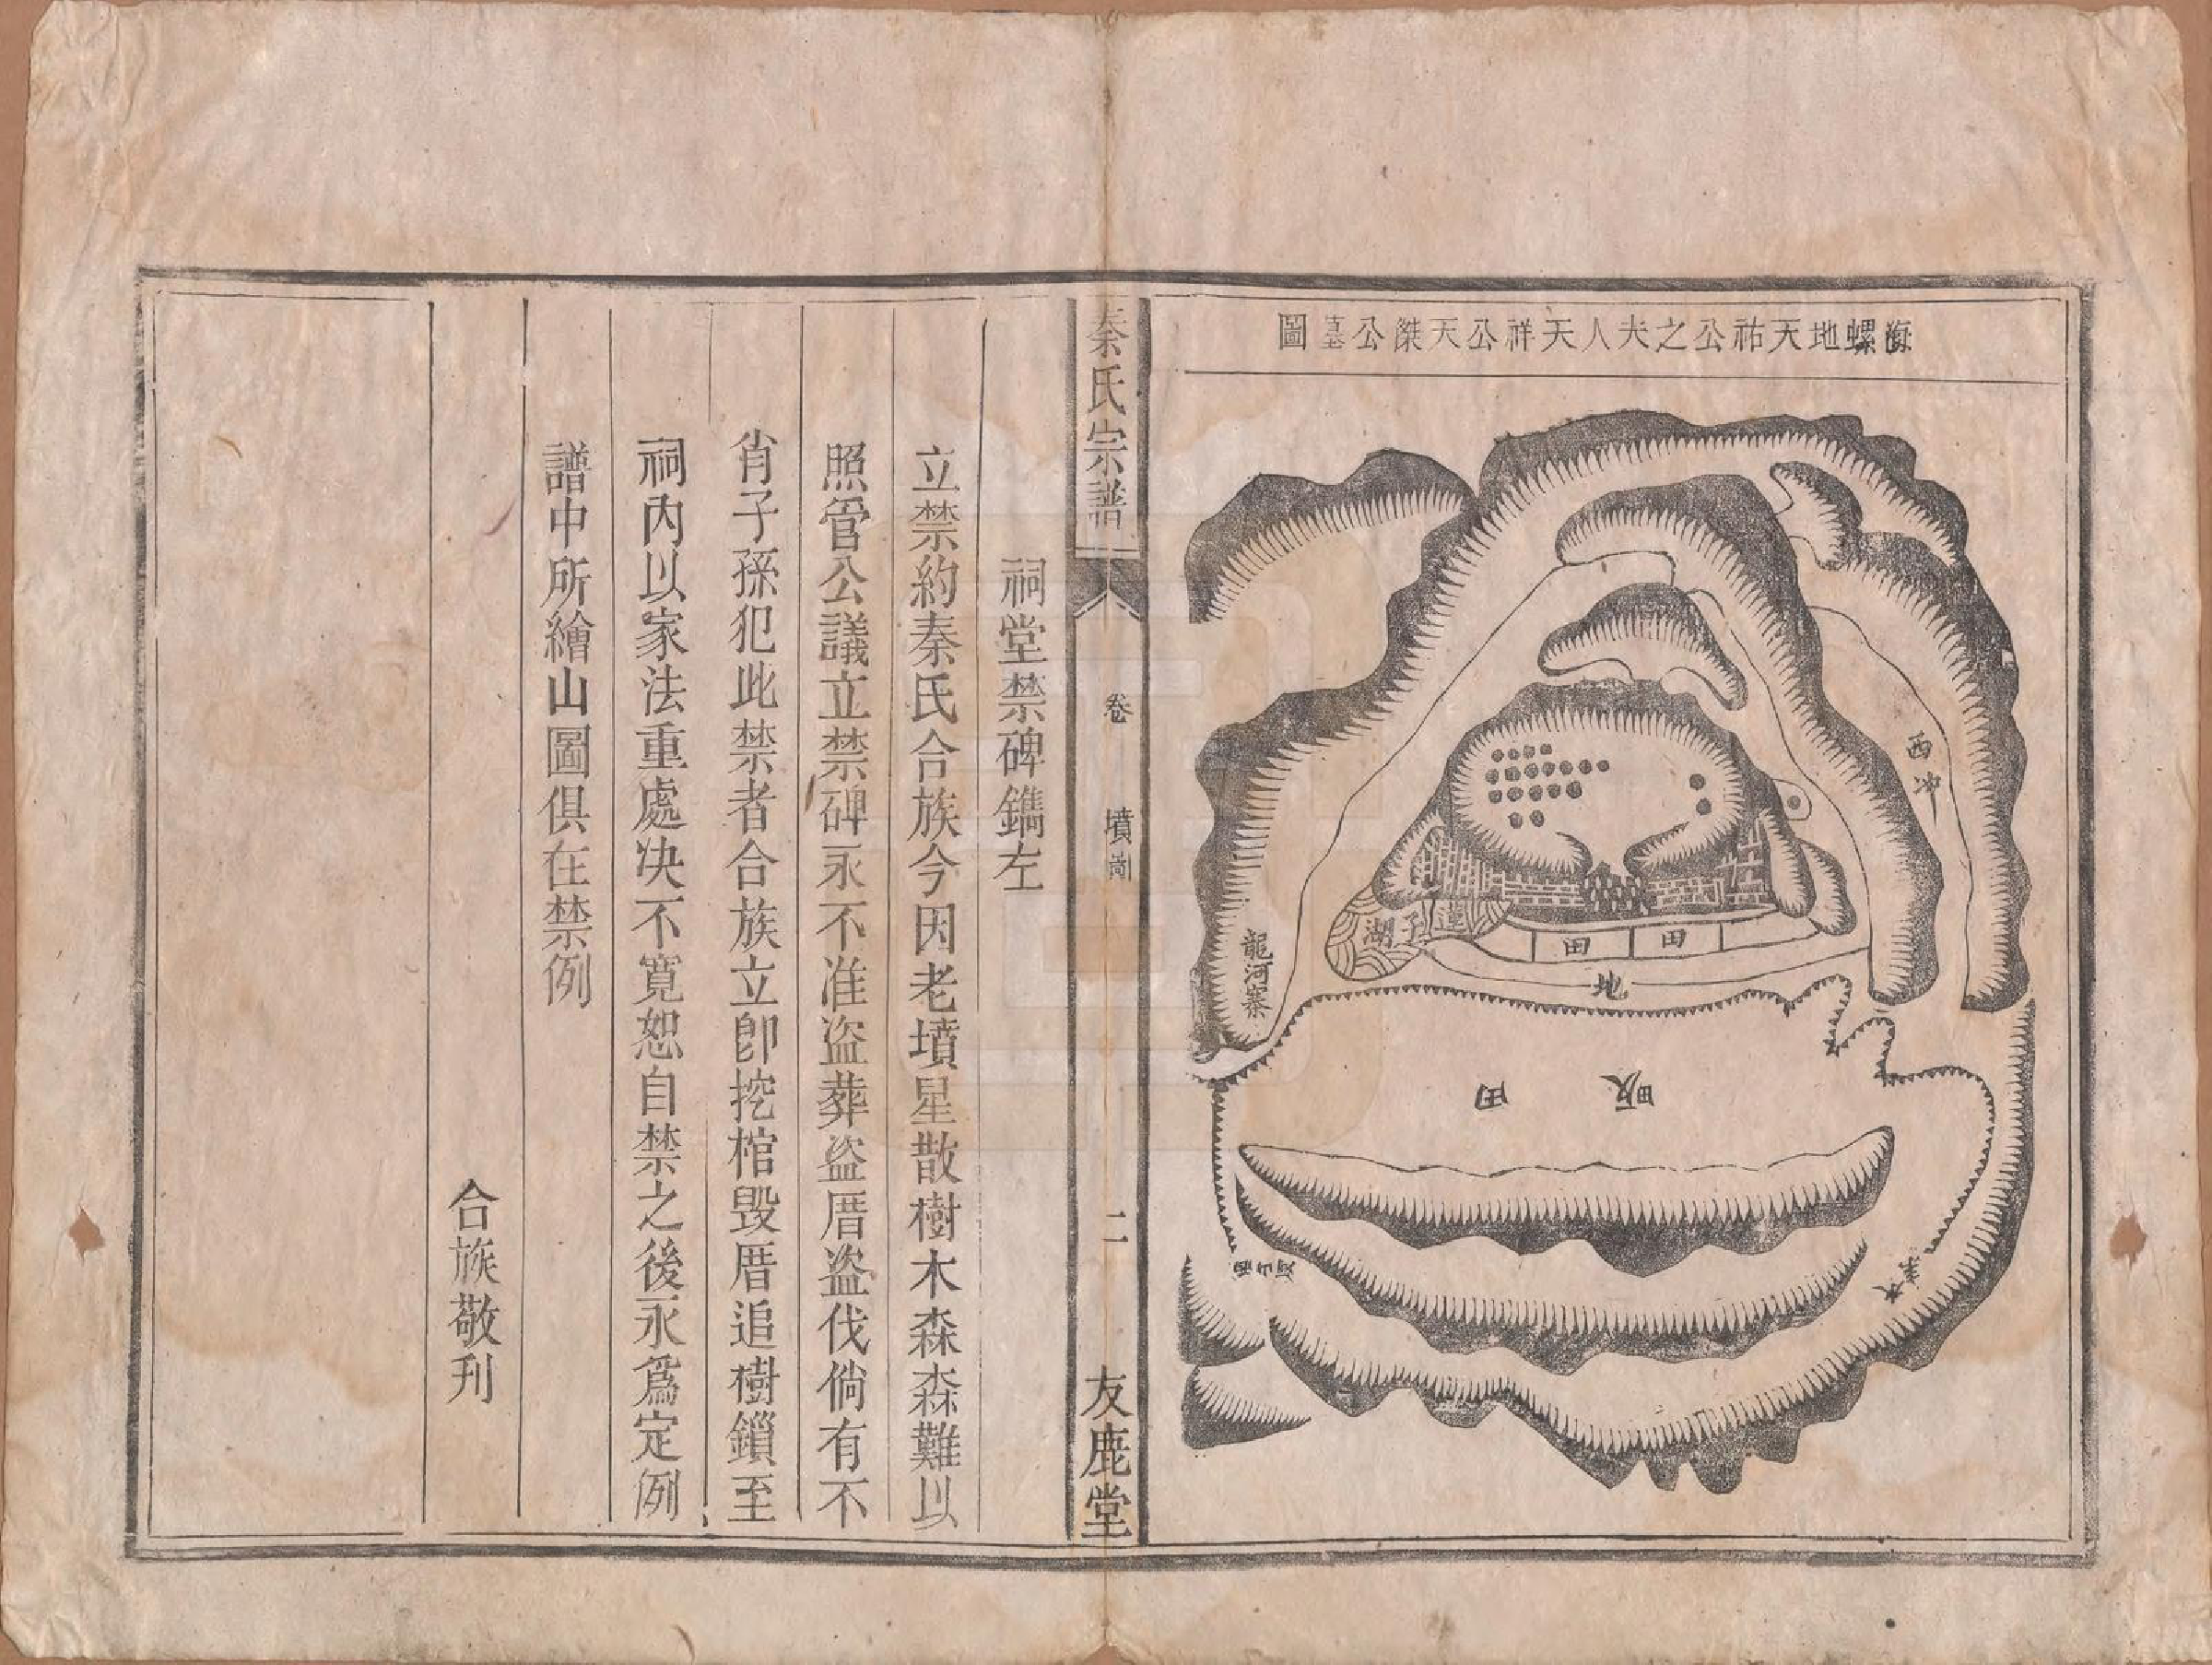 海螺地天祐公之夫人天祥公天傑公墓圖
西冲
龍河寨
蓮子湖
田
田
地
田
秦氏宗譜
卷
墳啚
二
友鹿堂
祠堂禁碑鐫左
立禁約秦氏合族今因老墳星散樹木森森難以
照管公議立禁碑永不准盜葬盜厝盜伐倘有不
肖子孫犯此禁者合族立卽挖棺毀厝追樹鎖至
祠內以家法重處决不寬恕自禁之後永爲定例
譜中所繪山圖俱在禁例
合族敬刊